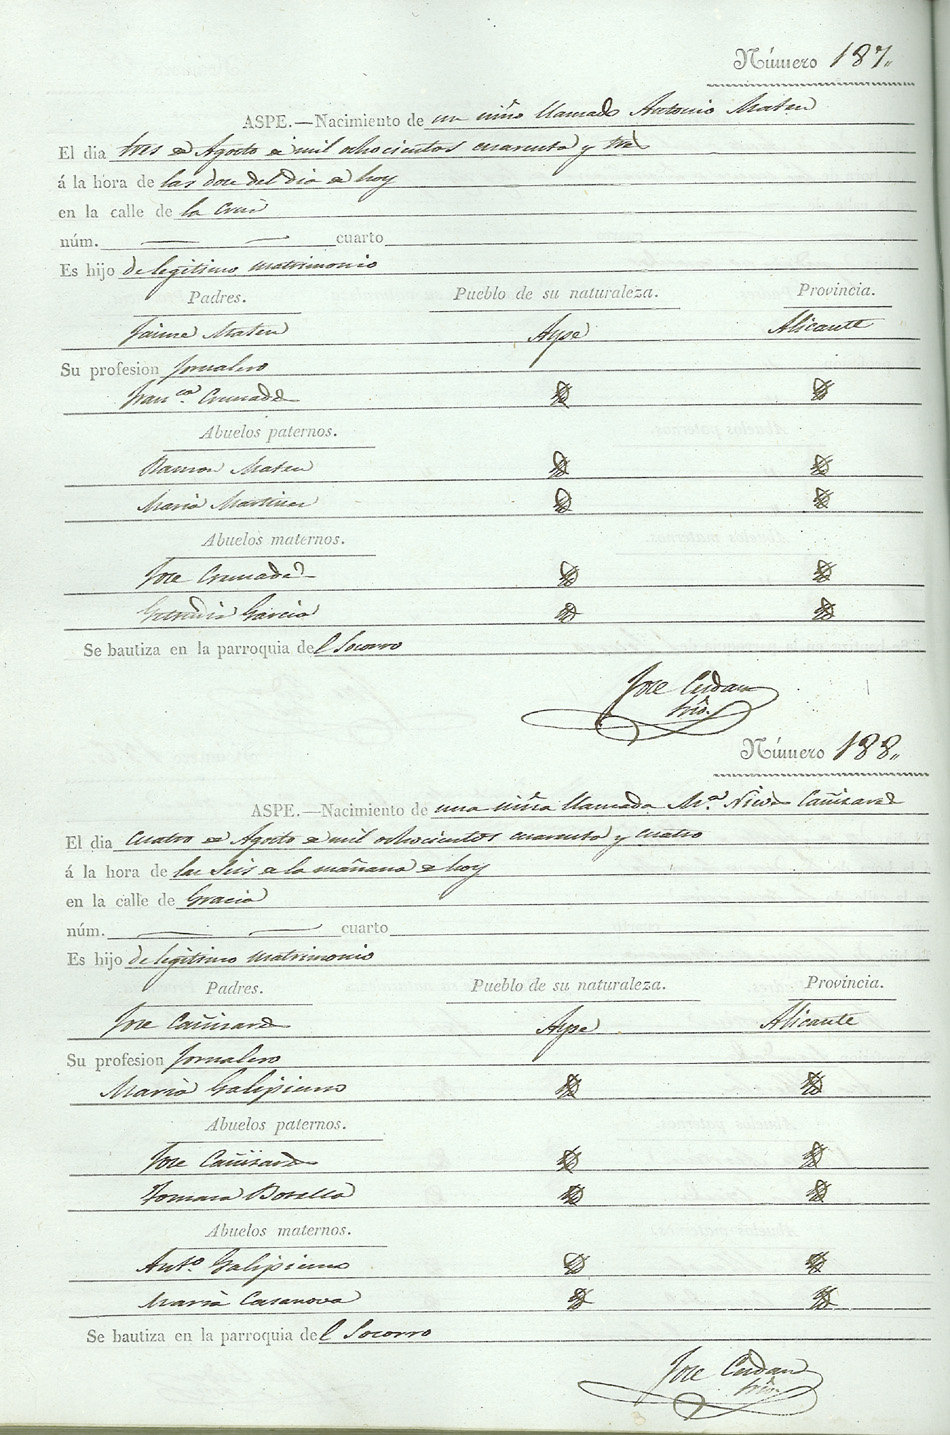 Número 187.
ASPE.—Nacimiento de un niño llamado Antonio Mateu
El dia tres de Agosto de mil ochocientos cuarenta y tres
á la hora de las doce del dia de hoy
en la calle de la Cruz
núm. — — cuarto
Es hijo de legitimo matrimonio
Padres. Pueblo de su naturaleza. Provincia.
Jaime Mateu Aspe Alicante
Su profesion Jornalero
Fran.ca
Abuelos paternos.
Ramon Mateu
Maria Martinez
Abuelos maternos.
Jose
Garcia
Se bautiza en la parroquia del Socorro
Jose
Número 188.
ASPE.—Nacimiento de una niña llamada M.a Cañizares
El dia cuatro de Agosto de mil ochocientos cuarenta y cuatro
á la hora de las seis de la mañana de hoy
en la calle de Gracia
núm. — — cuarto
Es hijo de legitimo matrimonio
Padres. Pueblo de su naturaleza. Provincia.
Jose Cañizares Aspe Alicante
Su profesion Jornalero
Maria Galipienso
Abuelos paternos.
Jose Cañizares
Tomasa Botella
Abuelos maternos.
Ant.o Galipienso
Maria Casanova
Se bautiza en la parroquia del Socorro
Jose